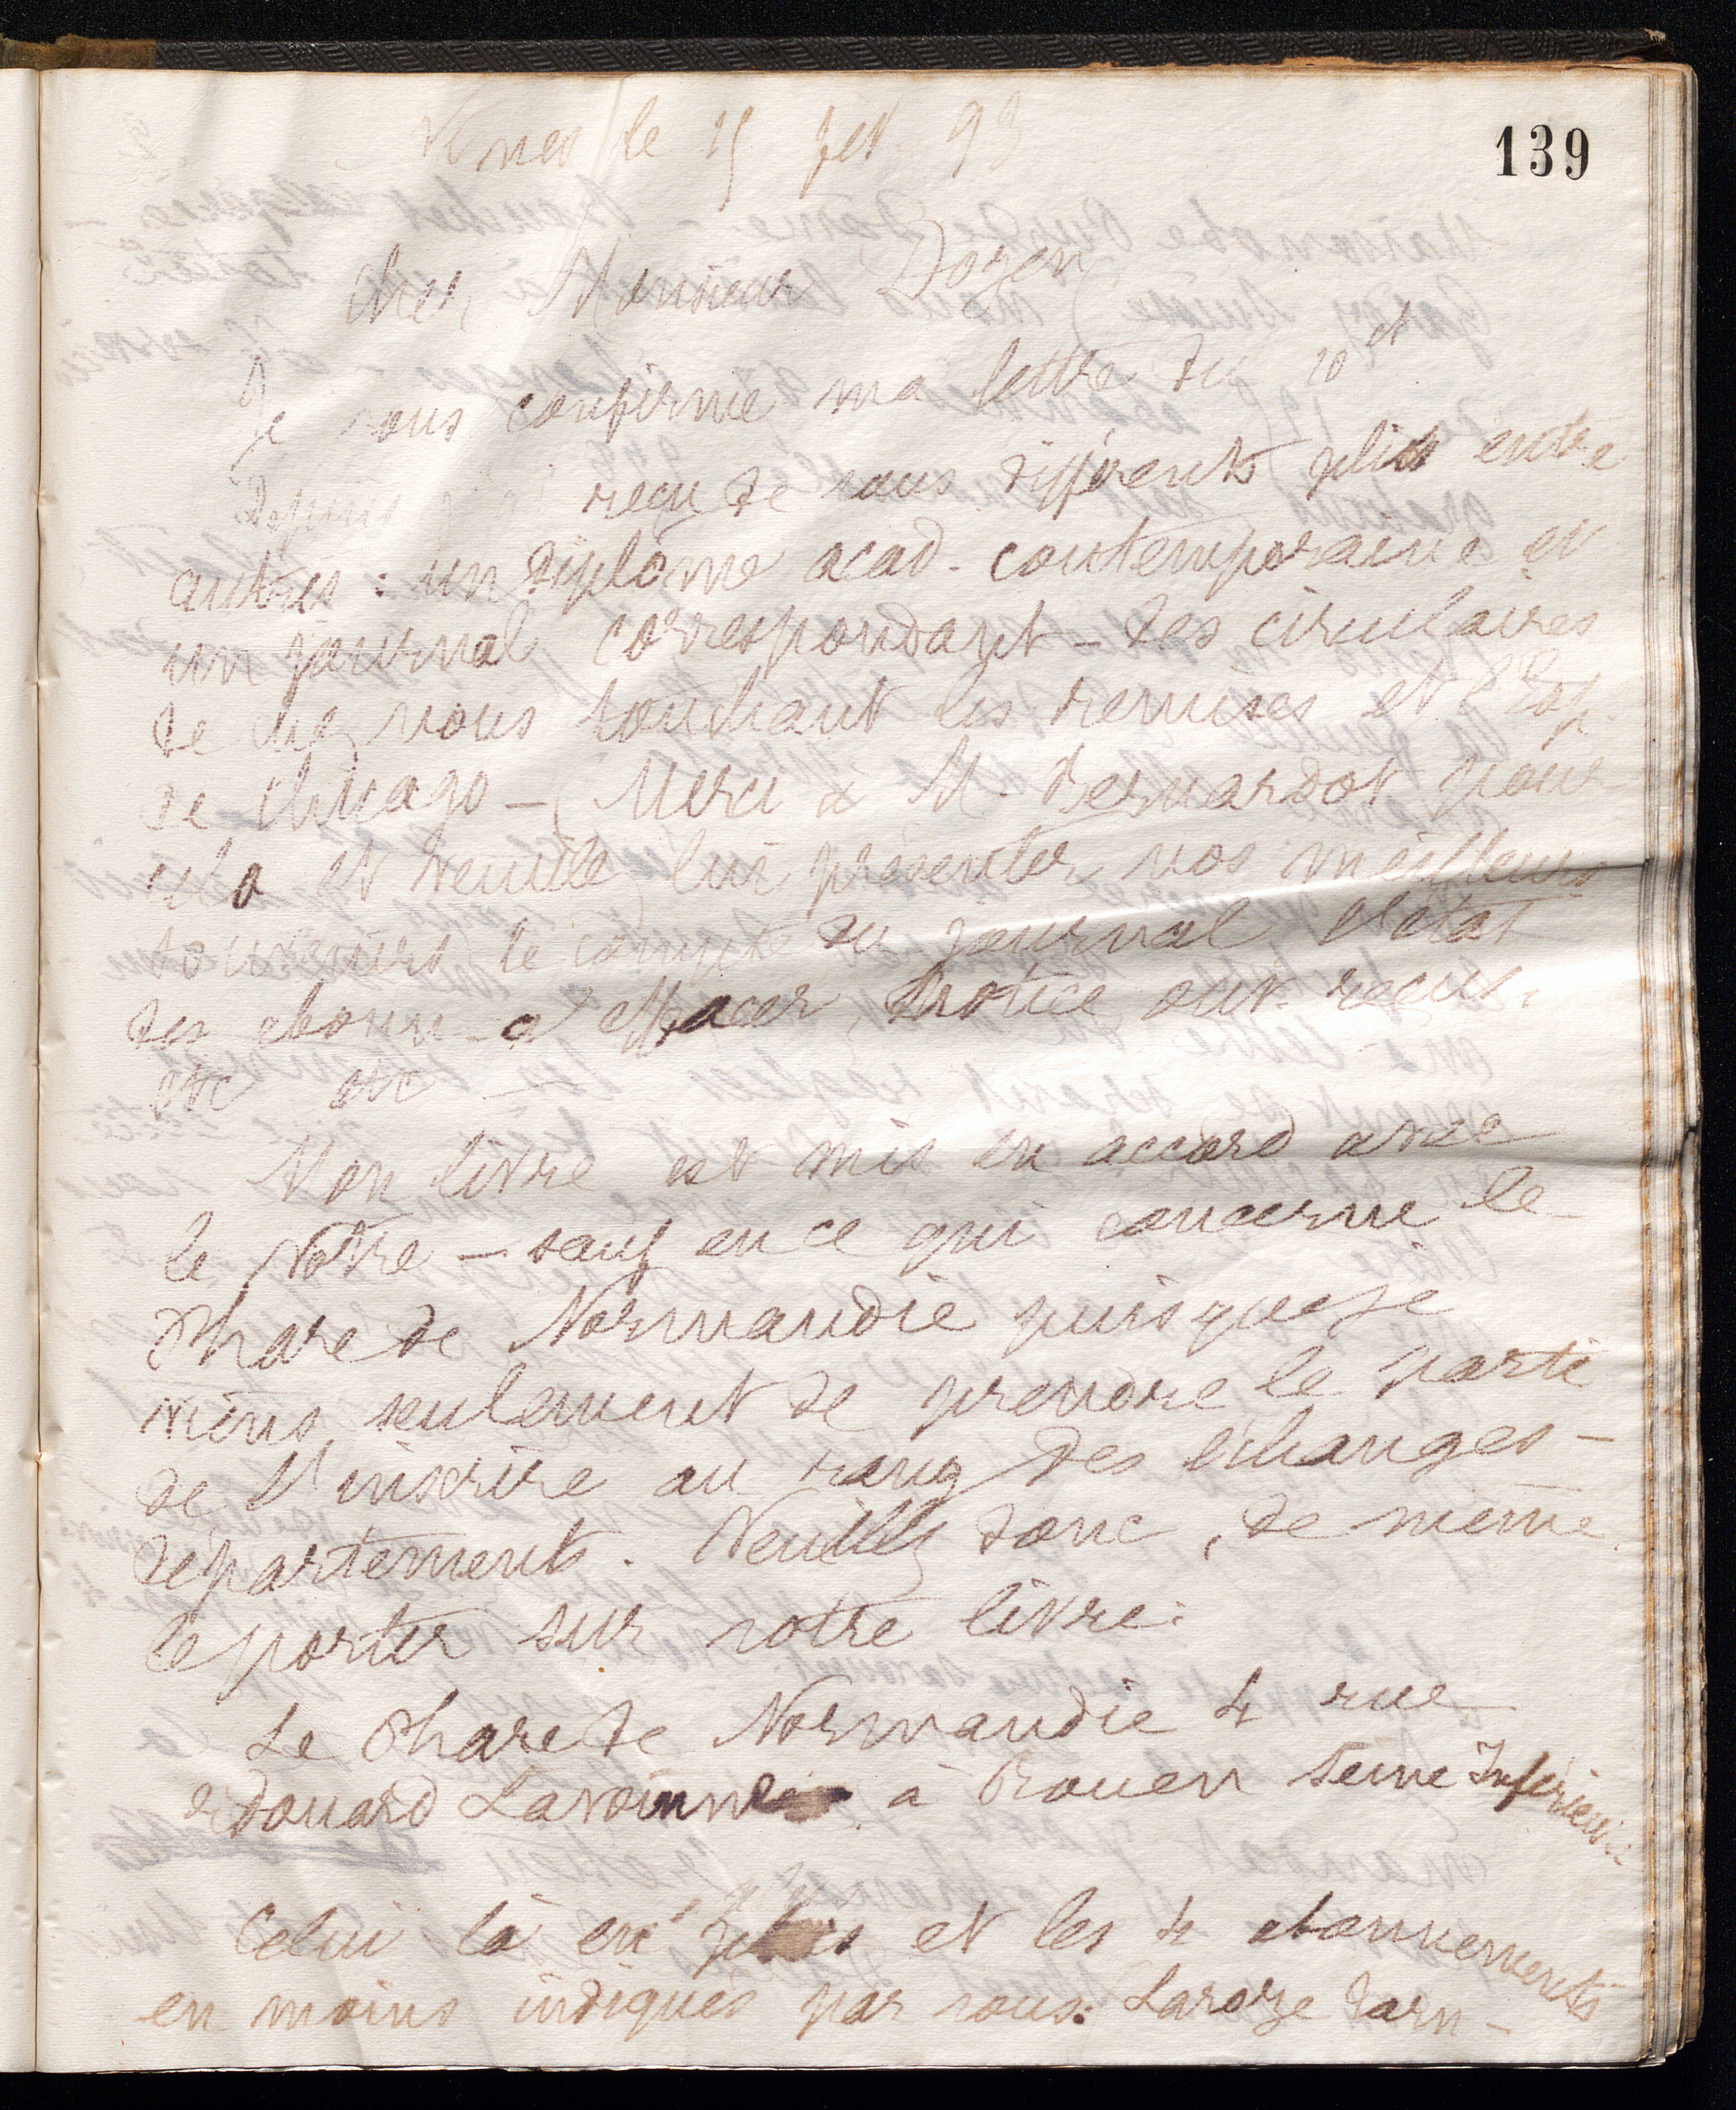 139
Nimes le 15 fev. 93
Cher Monsieur Doyen
Je vous confirme ma lettre du 10 ct
Depuis j'ai reçu de vous différents plis entre
autres : un diplôme acad. contemporaine et
un journal correspondant - des circulaires
de chez vous touchant les remises et l'Exp.
de Chicago - (Merci à M. Bernardot pour
cela et veuillez lui présenter nos meilleurs
souvenirs) le compte du journal l'état
des abonn. à effacer, notice ouv. reçus.
etc etc -
Mon livre est mis en accord avec
le vôtre - sauf en ce qui concerne le
Phare de Normandie puisque je
viens seulement de prendre le parti
de l'inscrire au rang des échanges -
départements. Veuillez donc, de même
le porter sur votre livre :
Le Phare de Normandie 4 rue
Edouard Lavoinne à Rouen Seine Inférieure
Celui là en plus et les 4 abonnements
en moins indiqués par vous : Laroze Tarn -